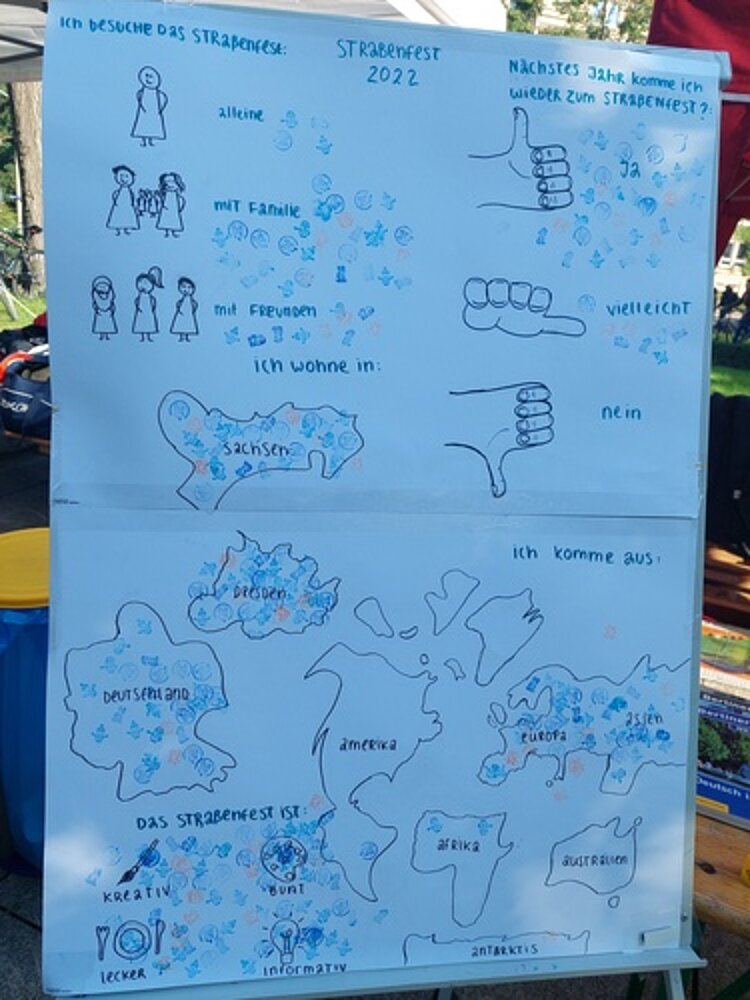 Ich besuche das Straßenfest:
Straßenfest
2022
Nächstes Jahr komme ich
wieder zum Straßenfest?:
alleine
Ja
mit Familie
mit Freunden
vielleicht
ich wohne in:
nein
Sachsen
ich komme aus:
Dresden
Deutschland
amerika
europa
asien
Das Straßenfest ist:
afrika
australien
kreativ
bunt
lecker
informativ
antarktis